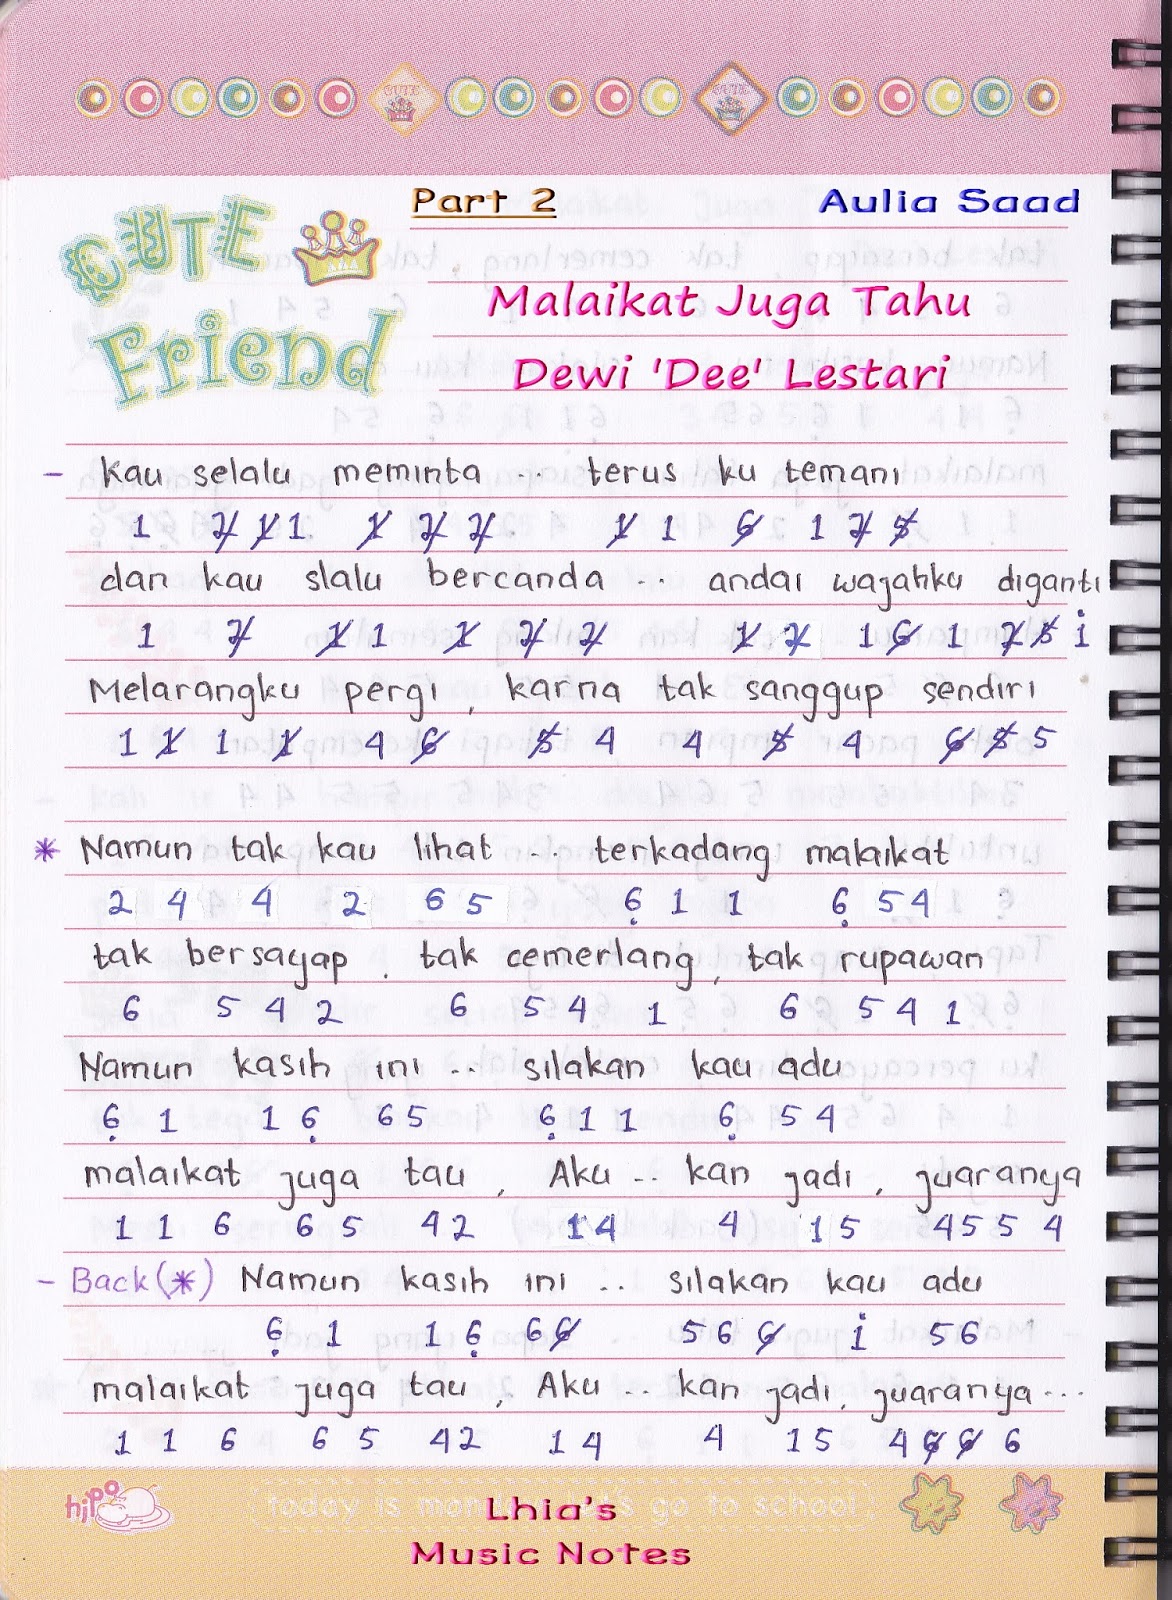 Part 2 Aulia Saad
CUTE
Friend
Malaikat Juga Tahu
Dewi 'Dee' Lestari
- Kau selalu meminta ... terus ku temani
1 2̸ 1̸ 1 1̸ 2̸ 2̸ 1̸ 1 6̸ 1 2̸ 5̸
dan kau slalu bercanda .. andai wajahku diganti
1 2̸ 1̸ 1 1̸ 2̸ 2̸ 1̸ 2̸ 1 6̸ 1 2̸ 5̸ 1̇
Melarangku pergi, karna tak sanggup sendiri
1 1̸ 1 1̸ 4 6̸ 5̸ 4 4 5̸ 4 6̸ 5̸ 5
* Namun tak kau lihat ... terkadang malaikat
2 4 4 2 6 5 6̣ 1 1 6̣ 5 4
tak bersayap, tak cemerlang, tak rupawan
6 5 4 2 6 5 4 1 6 5 4 1
Namun kasih ini .. silakan kau adu
6̣ 1 1 6̣ 6 5 6̣ 1 1 6̣ 5 4
malaikat juga tau, Aku .. kan jadi, juaranya
1 1 6 6 5 4 2 1 4 4 1 5 4 5 5 4
- Back (*) Namun kasih ini .. silakan kau adu
6̣ 1 1 6̣ 6 6̸ 5 6 6̸ 1̇ 5 6
malaikat juga tau, Aku .. kan jadi, juaranya ...
1 1 6 6 5 4 2 1 4 4 1 5 4 6̸ 6̸ 6
hipo
today is go to school
Lhia's
Music Notes